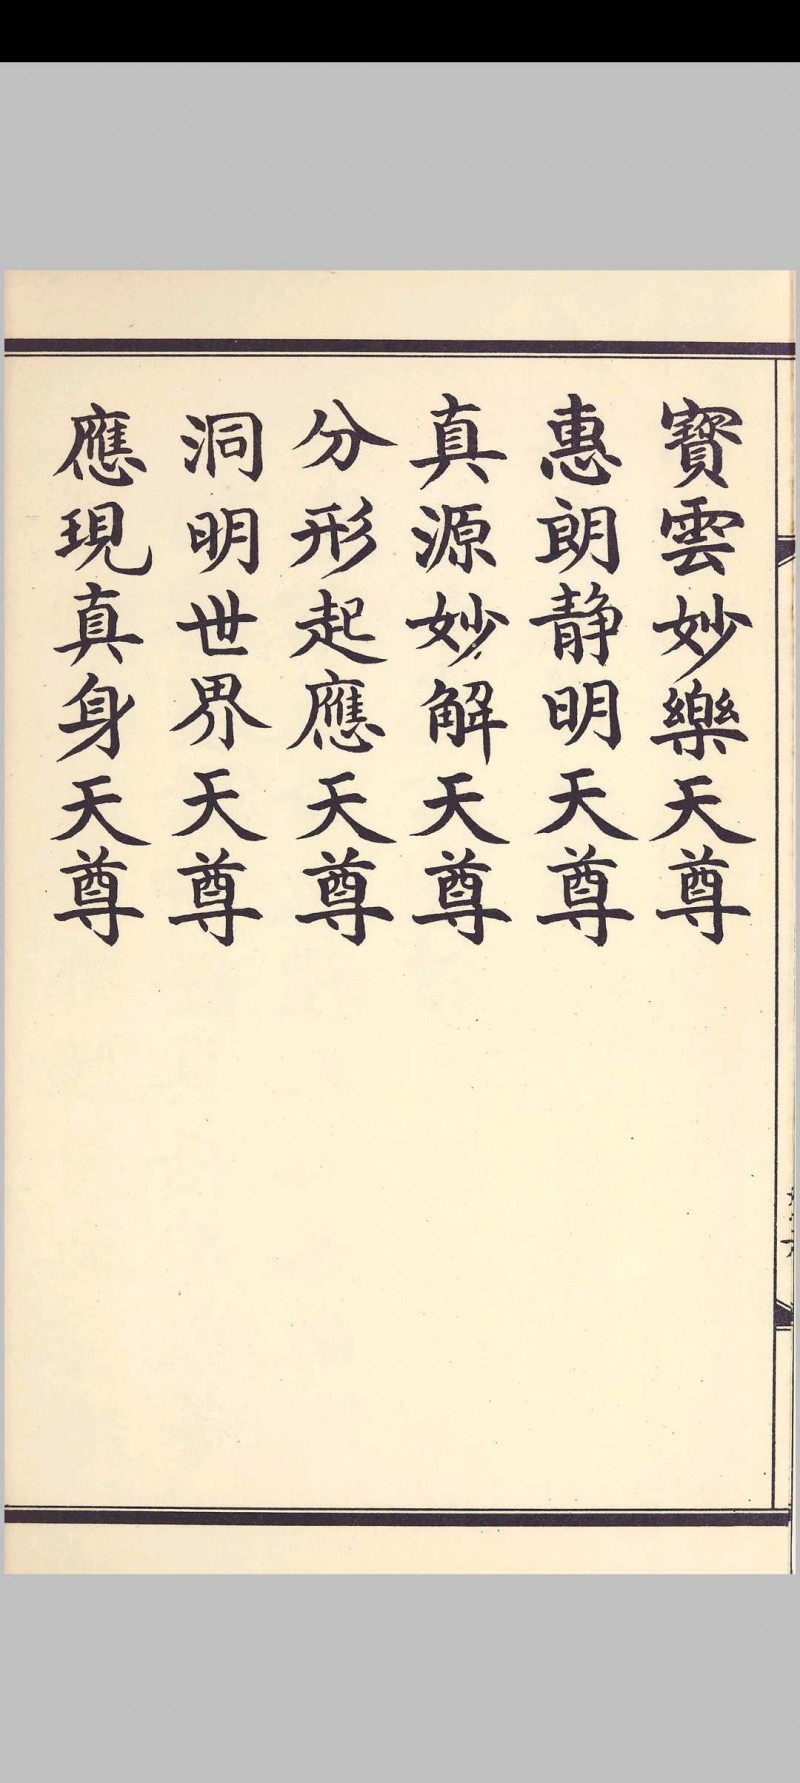 寳雲妙樂天尊
惠朗静明天尊
真源妙解天尊
分形起應天尊
洞明世界天尊
應現真身天尊